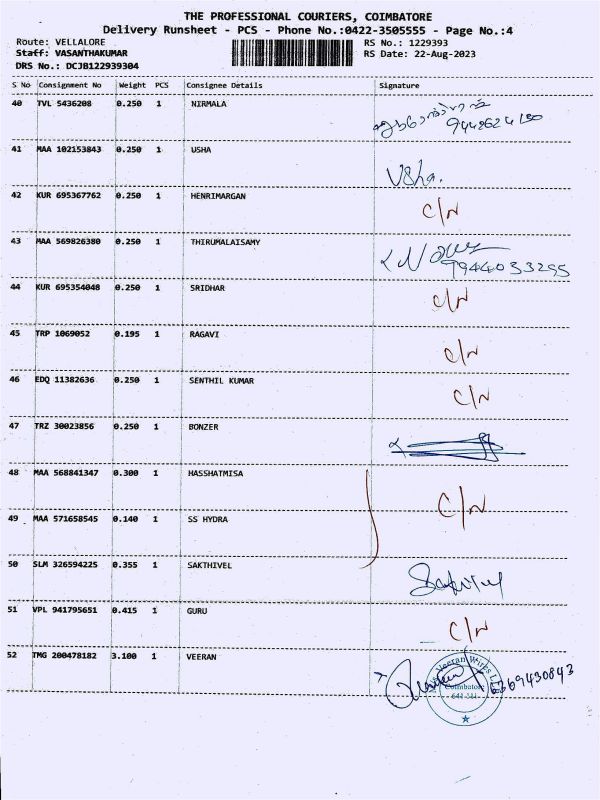 THE PROFESSIONAL COURIERS, COIMBATORE
Delivery Runsheet - PCS - Phone No.:0422-3505555 - Page No.:4
Route: VELLALORE RS No.: 1229393
Staff: VASANTHAKUMAR RS Date: 22-Aug-2023
DRS No.: DCJB122939304
S No Consignment No Weight PCS Consignee Details Signature
40 TVL 5436208 0.250 1 NIRMALA
41 MAA 102153843 0.250 1 USHA Usha.
42 KUR 695367762 0.250 1 HENRIMARGAN C/N
43 MAA 569826380 0.250 1 THIRUMALAISAMY
9944033295
44 KUR 695354048 0.250 1 SRIDHAR C/N
45 TRP 1069052 0.195 1 RAGAVI C/N
46 EDQ 11382636 0.250 1 SENTHIL KUMAR C/N
47 TRZ 30023856 0.250 1 BONZER
48 MAA 568841347 0.300 1 HASSHATMISA C/N
49 MAA 571658545 0.140 1 SS HYDRA
50 SLM 326594225 0.355 1 SAKTHIVEL
51 VPL 941795651 0.415 1 GURU C/N
52 TMG 200478182 3.100 1 VEERAN
Coimbatore